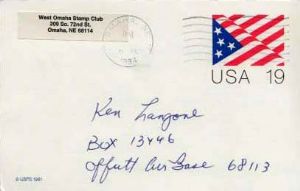 West Omaha Stamp Club
309 So. 72nd St.
Omaha, NE 68114
USA 19
Ken Langone
Box 13446
Offutt Air Base 68113
© USPS 1991